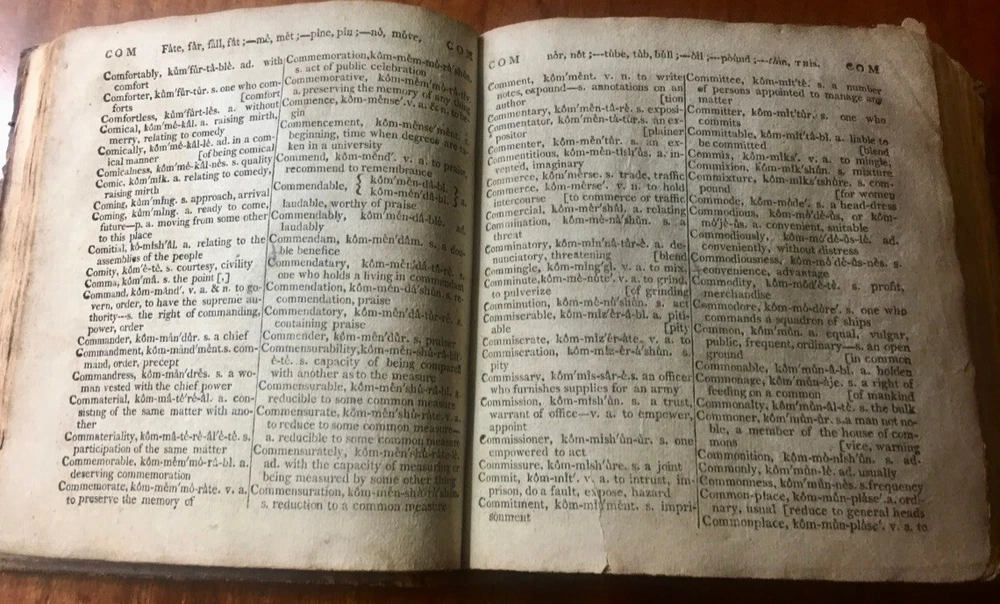 COM Fåte, får, fåll, fåt ;—mè, mèt ;—pine, pin ;—nò, mòve, COM
Comfortably, kům'fůr-tå-blè. ad. with
comfort
Comforter, kům'fůr-tůr. s. one who com-
forts [comfort
Comfortless, kům'fůrt-lès. a. without
Comical, kôm'mè-kål. a. raising mirth,
merry, relating to comedy
Comically, kôm'mè-kål-lè. ad. in a com-
ical manner [of being comical
Comicalness, kôm'mè-kål-nès. s. quality
Comic, kôm'mik. a. relating to comedy,
raising mirth
Coming, kům'mIng. s. approach, arrival
Coming, kům'mIng. a. ready to come,
future—p. a. moving from some other
to this place
Comitial, kô-mIsh'ål. a. relating to the
assemblies of the people
Comity, kôm'è-tè. s. courtesy, civility
Comma, kôm'må. s. the point [,]
Command, kôm-månd'. v. a. & n. to go-
vern, order, to have the supreme au-
thority—s. the right of commanding,
power, order
Commander, kôm-mån'důr. s. a chief
Commandment, kôm-månd'mènt. s. com-
mand, order, precept
Commandress, kôm-mån'drès. s. a wo-
man vested with the chief power
Commaterial, kôm-må-tè'rè-ål. a. con-
sisting of the same matter with ano-
ther
Commateriality, kôm-må-tè-rè-ål'è-tè. s.
participation of the same matter
Commemorable, kôm-mèm'mò-rå-bl. a.
deserving commemoration
Commemorate, kôm-mèm'mò-råte. v. a.
to preserve the memory of
Commemoration, kôm-mèm-mò-rå'shůn.
s. act of public celebration
Commemorative, kôm-mèm'mò-rå-tiv.
a. preserving the memory of any thing
Commence, kôm-mènse'. v. a. & n. to be-
gin
Commencement, kôm-mènse'mènt. s.
beginning, time when degrees are ta-
ken in a university
Commend, kôm-mènd'. v. a. to praise,
recommend to remembrance
Commendable, { kôm'mèn-då-bl. } a.
{ kôm-mèn'då-bl. }
laudable, worthy of praise
Commendably, kôm'mèn-då-blè. ad.
laudably
Commendam, kôm-mèn'dåm. s. a dou-
ble benefice
Commendatary, kôm-mèn'då-tå-rè. s.
one who holds a living in commendam
Commendation, kôm-mèn-då'shůn. s. re-
commendation, praise
Commendatory, kôm-mèn'då-tůr-è. s.
containing praise
Commender, kôm-mèn'důr. s. praiser
Commensurability, kôm-mèn-shů-rå-bIl'-
è-tè. s. capacity of being compared
with another as to the measure
Commensurable, kôm-mèn'shů-rå-bl. a.
reducible to some common measure
Commensurate, kôm-mèn'shů-råte. v. a.
to reduce to some common measure—
a. reducible to some common measure
Commensurately, kôm-mèn'shů-råte-lè.
ad. with the capacity of measuring or
being measured by some other thing
Commensuration, kôm-mèn-shů-rå'shůn.
s. reduction to a common measure
COM nòr, nôt ;—tùbe, tůb, bůll ;—ôIl ;—pôůnd ;—thin, THIS. COM
Comment, kôm'mènt. v. n. to write
notes, expound—s. annotations on an
author [tion
Commentary, kôm'mèn-tå-rè. s. exposi-
Commentator, kôm'mèn-tå-tůr. s. an ex-
positor [plainer
Commenter, kôm'mèn-tůr. s. an ex-
Commentitious, kôm-mèn-tIsh'ůs. a. in-
vented, imaginary
Commerce, kôm'mèrse. s. trade, traffic
Commerce, kôm-mèrse'. v. n. to hold
intercourse [to commerce or traffic
Commercial, kôm-mèr'shål. a. relating
Commination, kôm-mè-nå'shůn. s. a
threat
Comminatory, kôm-mIn'nå-tůr-è. a. de-
nunciatory, threatening [blend
Commingle, kôm-mIng'gl. v. a. to mix,
Comminute, kôm-mè-nůte'. v. a. to grind,
to pulverize [of grinding
Comminution, kôm-mè-nů'shůn. s. act
Commiserable, kôm-mIz'èr-å-bl. a. piti-
able [pity
Commiserate, kôm-mIz'èr-åte. v. a. to
Commiseration, kôm-mIz-èr-å'shůn. s.
pity
Commissary, kôm'mIs-sår-è. s. an officer
who furnishes supplies for an army
Commission, kôm-mIsh'ůn. s. a trust,
warrant of office—v. a. to empower,
appoint
Commissioner, kôm-mIsh'ůn-ůr. s. one
empowered to act
Commissure, kôm-mIsh'ůre. s. a joint
Commit, kôm-mIt'. v. a. to intrust, im-
prison, do a fault, expose, hazard
Commitment, kôm-mIt'mènt. s. impri-
sonment
Committee, kôm-mIt'tè. s. a number
of persons appointed to manage any
matter
Committer, kôm-mIt'tůr. s. one who
commits
Committable, kôm-mIt'tå-bl. a. liable to
be committed [blend
Commix, kôm-mIks'. v. a. to mingle,
Commixion, kôm-mIk'shůn. s. mixture
Commixture, kôm-mIks'tshůre. s. com-
pound [for women
Commode, kôm-mòde'. s. a head-dress
Commodious, kôm-mò'dè-ůs, or kôm-
mò'jè-ůs. a. convenient, suitable
Commodiously, kôm-mò'dè-ůs-lè. ad.
conveniently, without distress
Commodiousness, kôm-mò'dè-ůs-nès. s.
convenience, advantage
Commodity, kôm-môd'è-tè. s. profit,
merchandise
Commodore, kôm-mò-dòre'. s. one who
commands a squadron of ships
Common, kôm'můn. a. equal, vulgar,
public, frequent, ordinary—s. an open
ground [in common
Commonable, kôm'můn-å-bl. a. holden
Commonage, kôm'můn-åje. s. a right of
feeding on a common [of mankind
Commonalty, kôm'můn-ål-tè. s. the bulk
Commoner, kôm'můn-ůr. s. a man not no-
ble, a member of the house of com-
mons [vice, warning
Commonition, kôm-mò-nIsh'ůn. s. ad-
Commonly, kôm'můn-lè. ad. usually
Commonness, kôm'můn-nès. s. frequency
Common-place, kôm-můn-plåse'. a. ordi-
nary, usual [reduce to general heads
Commonplace, kôm-můn-plåse'. v. a. to